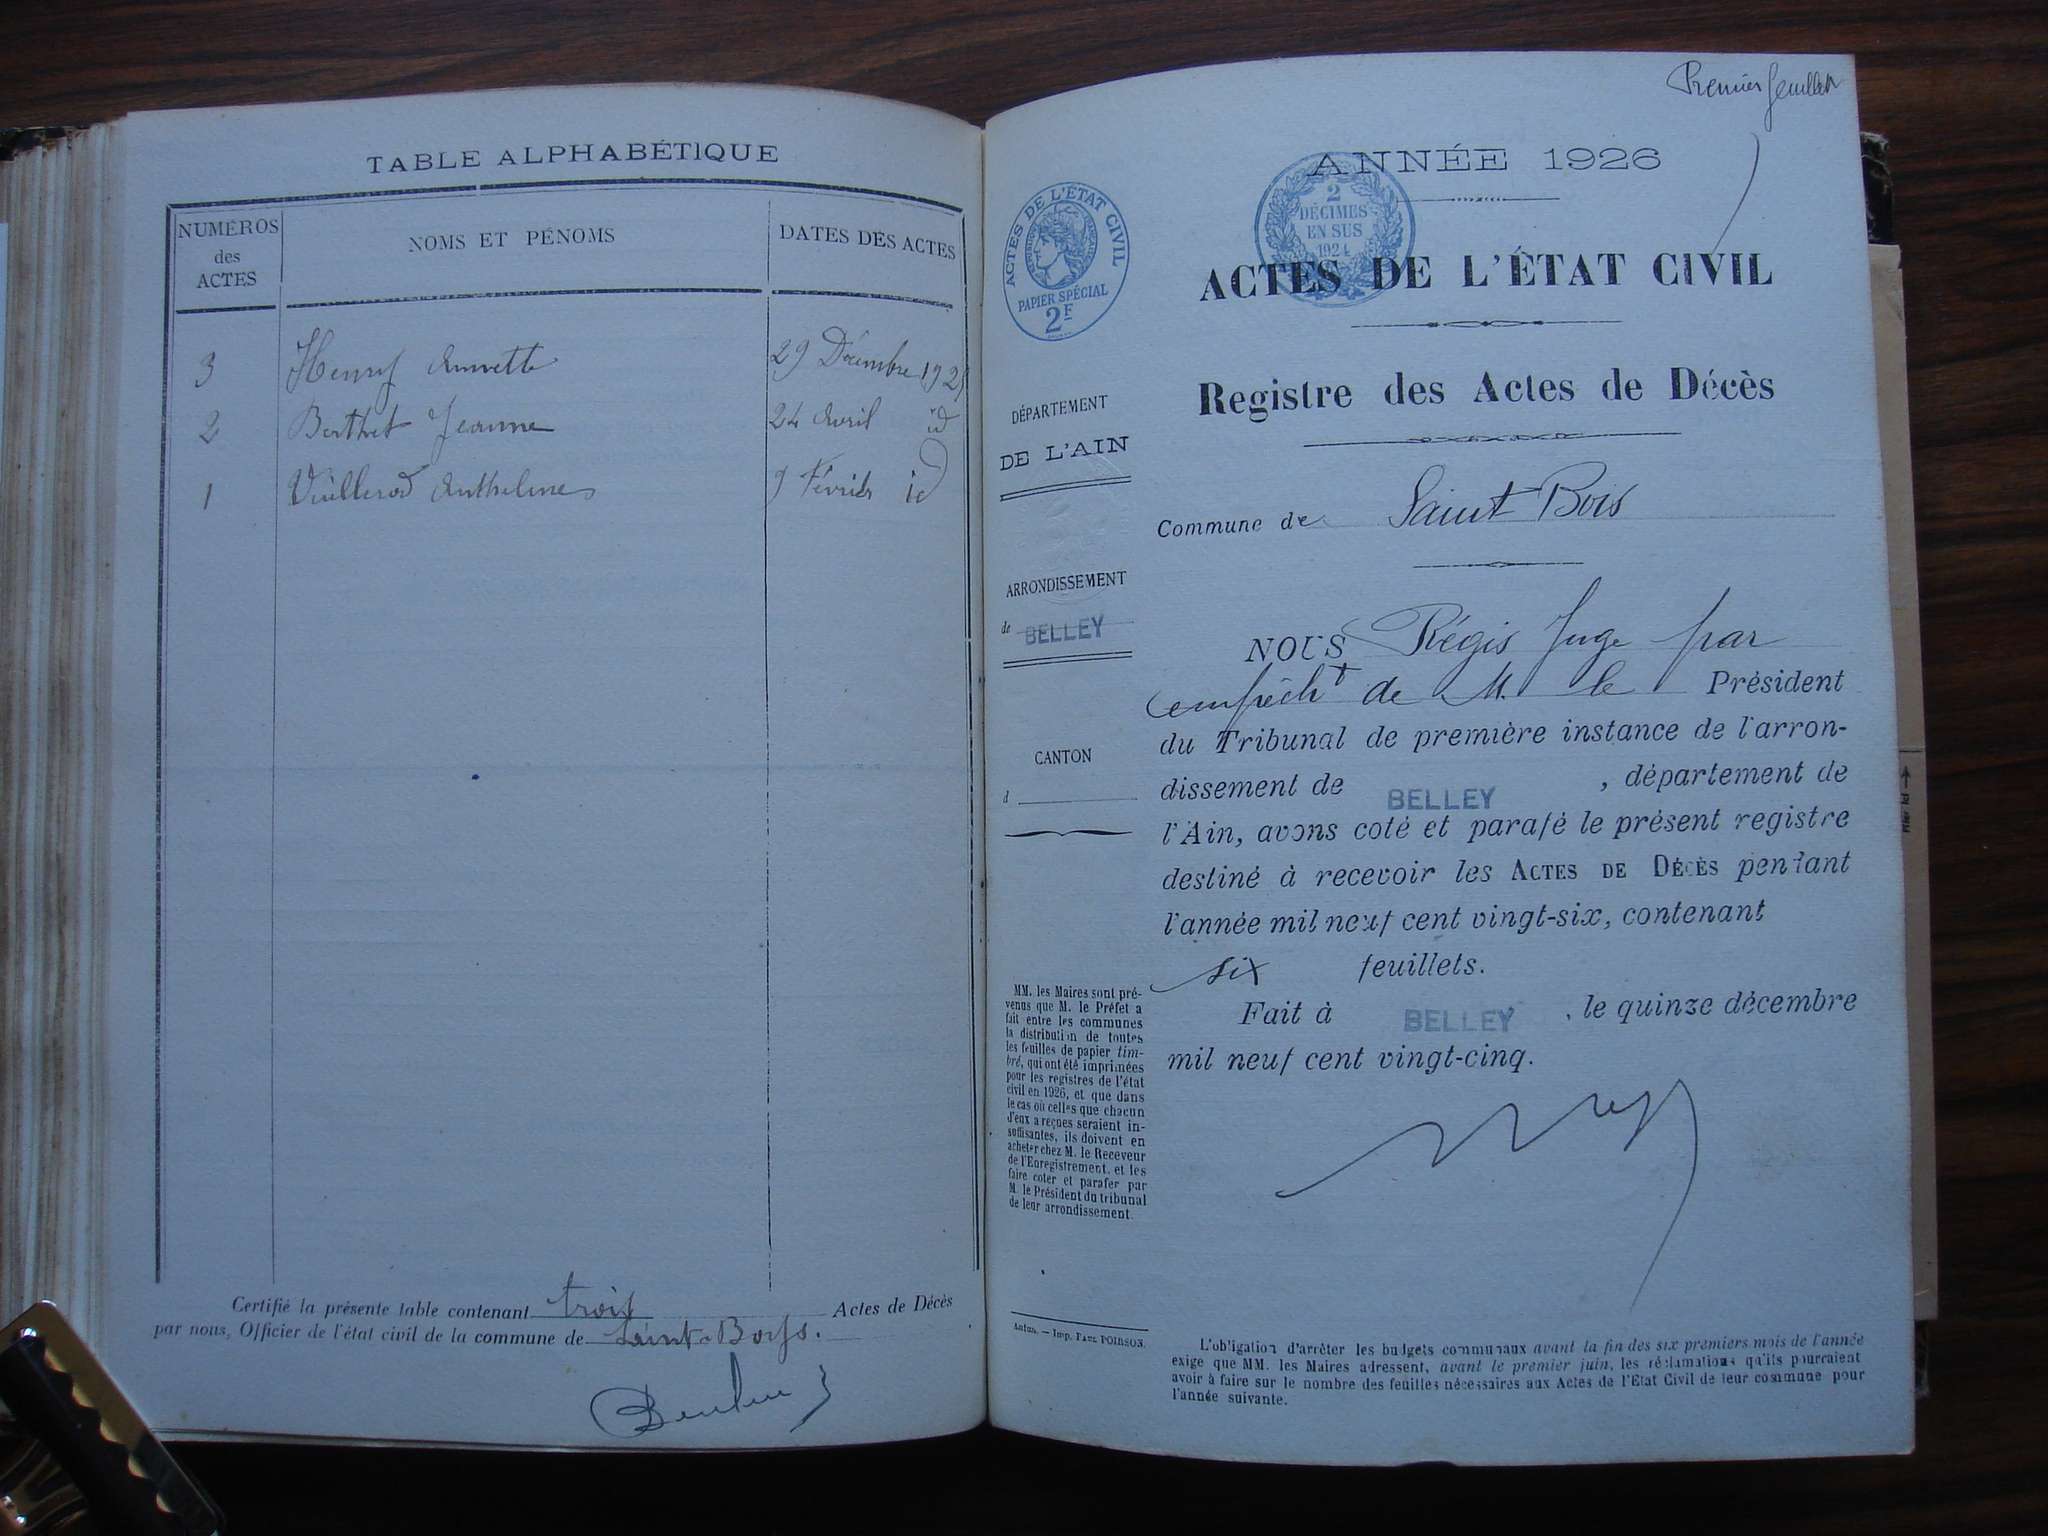 TABLE ALPHABÉTIQUE
NUMÉROS
des
ACTES
NOMS ET PÉNOMS
DATES DES ACTES
3 Henry Annette 29 Décembre 1925
2 Berthet Jeanne 24 Avril id
1 Vuillerod Anthelme 9 Février id
Certifié la présente table contenant trois Actes de Décès
par nous, Officier de l'état civil de la commune de Saint-Boys.
Premier feuillet
ANNÉE 1926
ACTES DE L'ÉTAT CIVIL
RÉPUBLIQUE FRANÇAISE
PAPIER SPÉCIAL
2F
2
DÉCIMES
EN SUS
1924
ACTES DE L'ÉTAT CIVIL
Registre des Actes de Décès
DÉPARTEMENT
DE L'AIN
Commune de Saint Bois
ARRONDISSEMENT
de BELLEY
CANTON
d
NOUS Régis Juge par
empêcht de M. le Président
du Tribunal de première instance de l'arron-
dissement de BELLEY, département de
l'Ain, avons coté et parafé le présent registre
destiné à recevoir les ACTES DE DÉCÈS pendant
l'année mil neuf cent vingt-six, contenant
six feuillets.
Fait à BELLEY, le quinze décembre
mil neuf cent vingt-cinq.
MM. les Maires sont pré-
venus que M. le Préfet a
fait entre les communes
la distribution de toutes
les feuilles de papier tim-
bré, qui ont été imprimées
pour les registres de l'état
civil en 1926, et que dans
le cas où celles que chacun
d'eux a reçues seraient in-
suffisantes, ils doivent en
acheter chez M. le Receveur
de l'Enregistrement, et les
faire coter et parafer par
M. le Président du tribunal
de leur arrondissement.
Autun. — Imp. PAUL POIRSON.
L'obligation d'arrêter les budgets communaux avant la fin des six premiers mois de l'année
exige que MM. les Maires adressent, avant le premier juin, les réclamations qu'ils pourraient
avoir à faire sur le nombre des feuilles nécessaires aux Actes de l'Etat Civil de leur commune pour
l'année suivante.